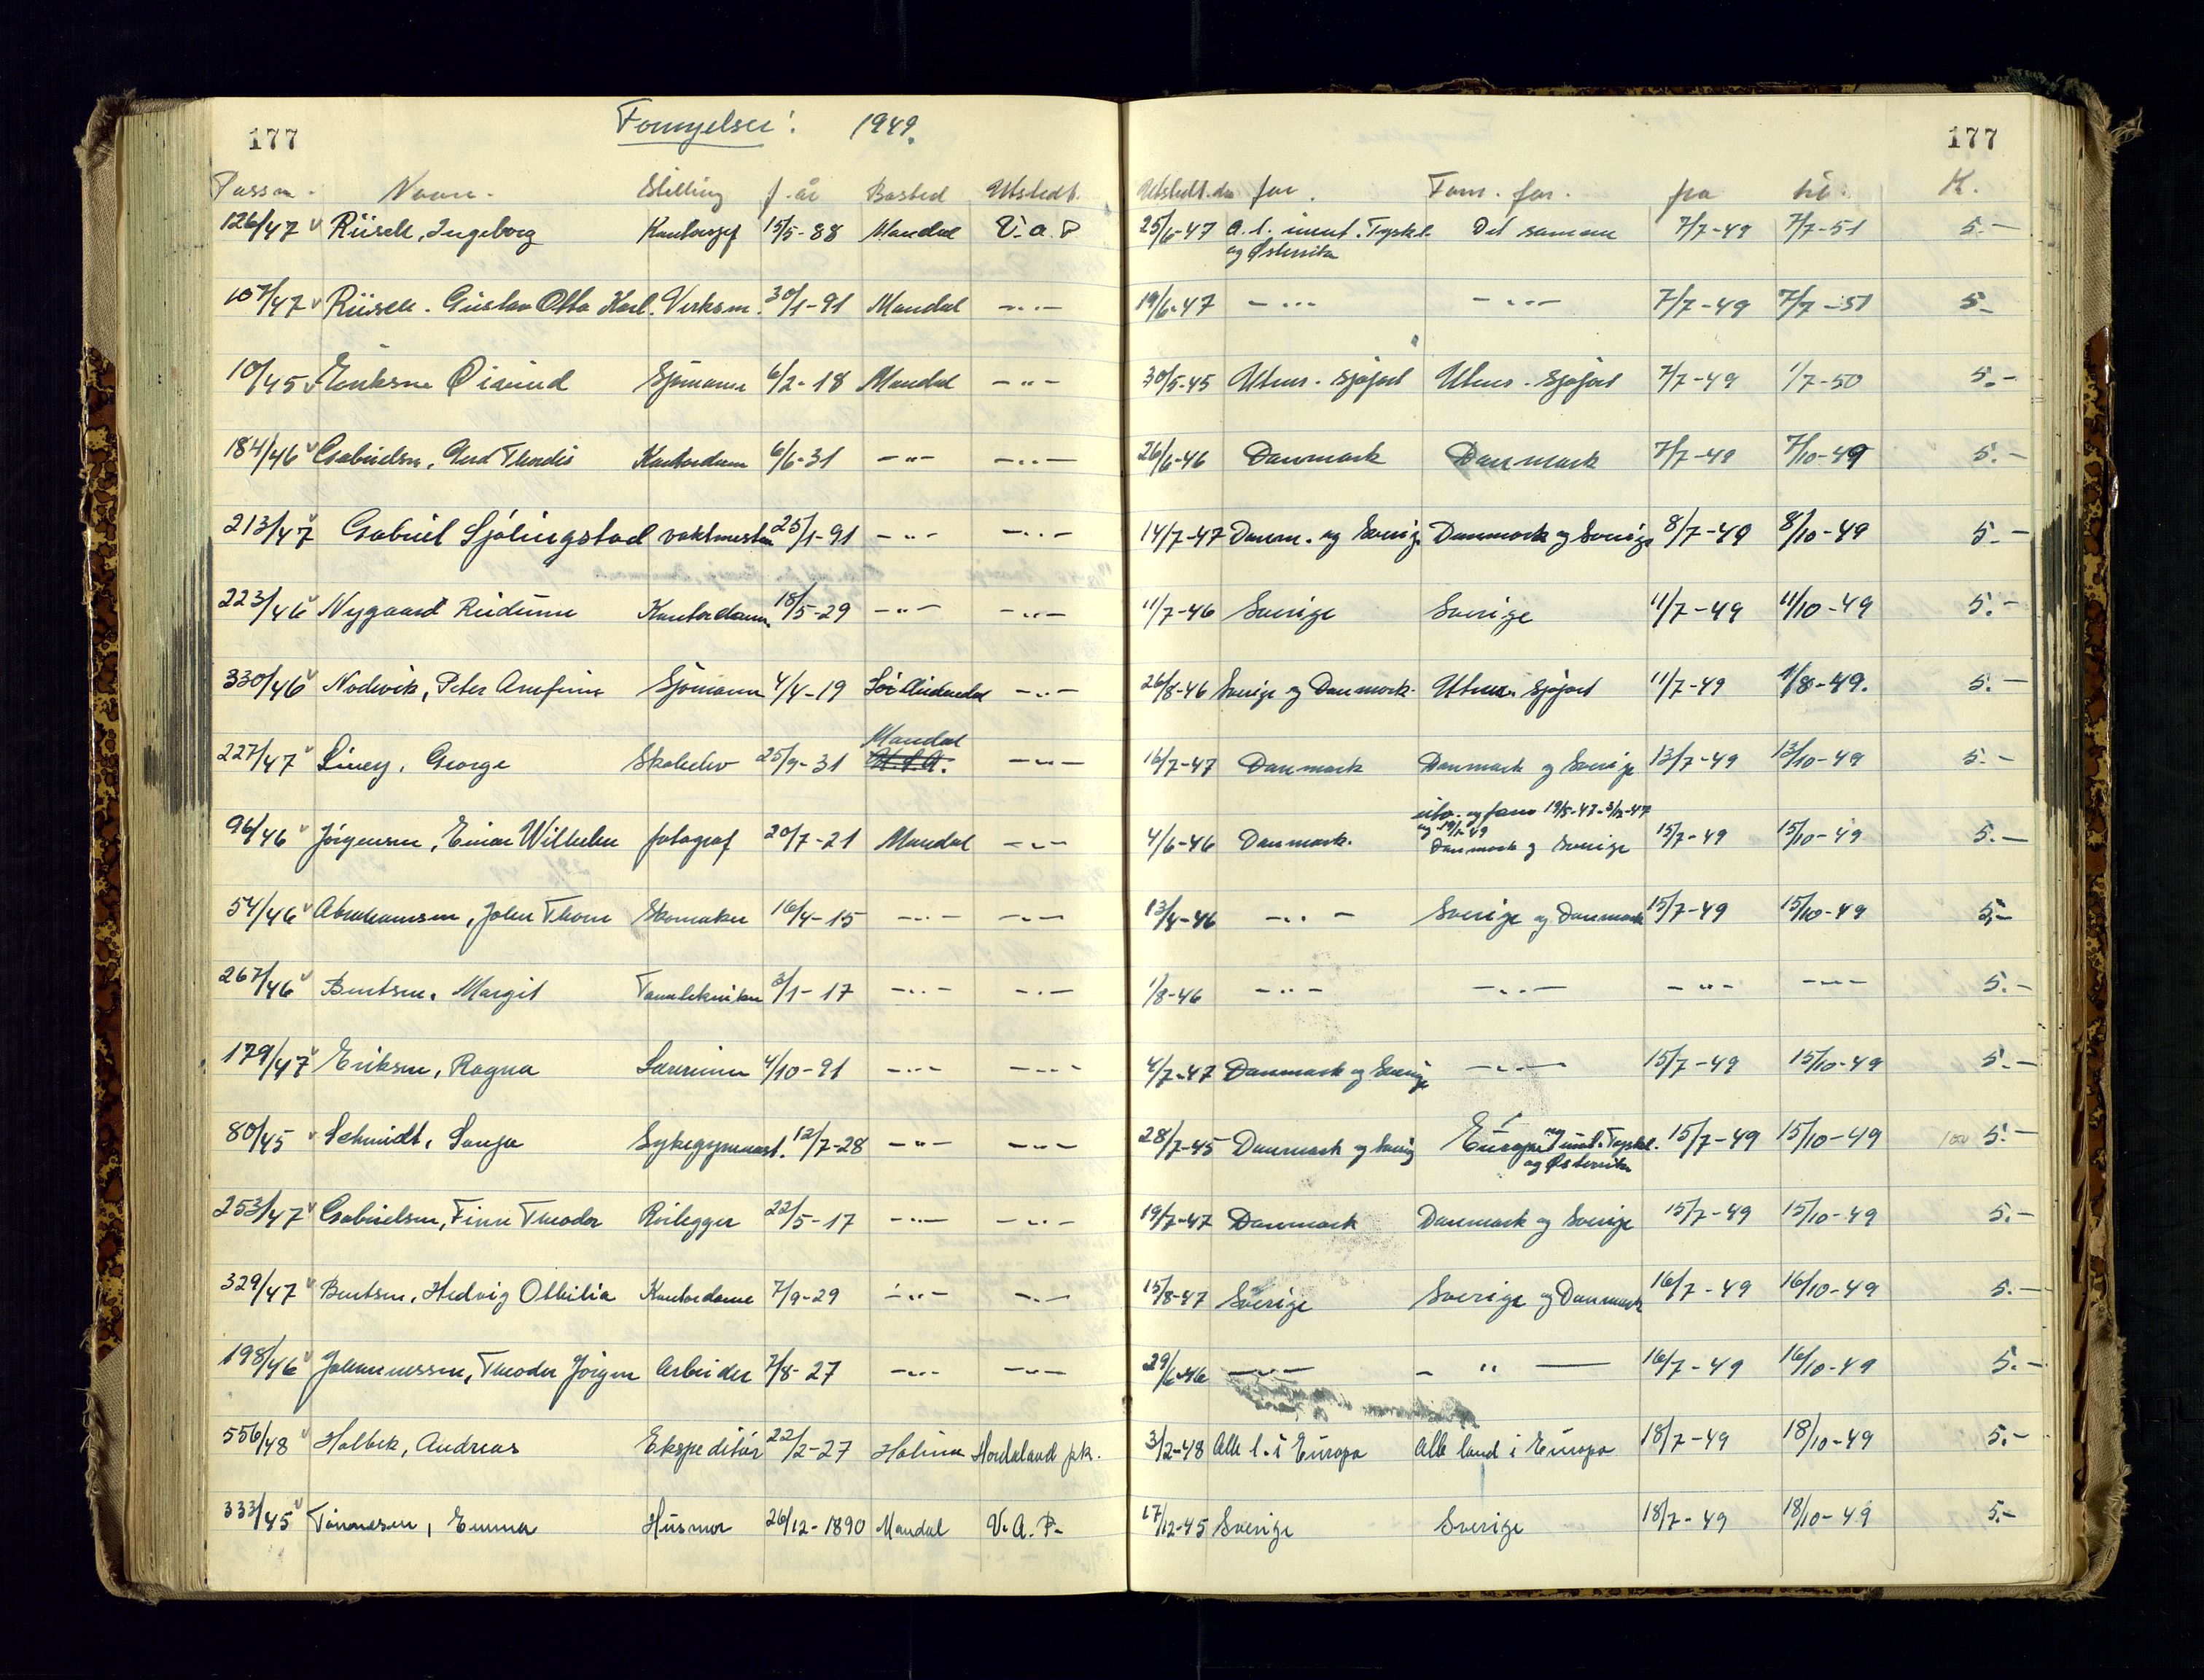 177 Fornyelser: 1949. 177
Passnr. Navn. Stilling f. år Bosted Utstedt. Utstedt. da for. Forn. for. fra til. K.
126/47 Riisell, Ingeborg Kontorsjef 15/5-88 Mandal V.a.P 25/6-47 a. l. unnt. Tyskl. Det samme 7/7-49 7/7-51 5.-
og Østerrike
107/47 Riisell. Gustav Otto Karl. Verksm. 30/1-91 Mandal -"- 19/6-47 -"- -"- 7/7-49 7/7-51 5-
10/45 Eriksen Øivind Sjømann 6/2-18 Mandal -"- 30/5-45 Utenr. sjøfart Utenr. sjøfart 7/7-49 1/7-50 5.-
184/46 Gabrielsen, Gerd Thordis Kontordame 6/6-31 -"- -"- 26/6-46 Danmark Danmark 7/7-49 7/10-49 5.-
213/47 Gabriel Sjølingstad vaktmester 25/1-91 -"- -"- 14/7-47 Danm. og Sverige Danmark og Sverige 8/7-49 8/10-49 5.-
223/46 Nygaard Reidunn Kontordame 18/5-29 -"- -"- 11/7-46 Sverige Sverige 11/7-49 11/10-49 5.-
330/46 Nodevik, Peter Arnfinn Sjømann 4/4-19 Sør Audnedal -"- 26/8-46 Sverige og Danmark. Utenr. sjøfart 11/7-49 11/8-49. 5.-
Mandal
227/47 Liney, George Skoleelev 25/9-31 U.S.A. -"- 16/7-47 Danmark Danmark og Sverige 13/7-49 13/10-49 5.-
utv. og forn 19/5-47-3/12-47
og 19/1-49
96/46 Jørgensen, Einar Wilhelm fotograf 20/7-21 Mandal -"- 4/6-46 Danmark. Danmark og Sverige 15/7-49 15/10-49 5.-
54/46 Abrahamsen, John Thom Skomaker 16/4-15 -"- -"- 13/4-46 -"- Sverige og Danmark 15/7-49 15/10-49 5,-
267/46 Bentsen. Margit Tanntekniker 3/1-17 -"- -"- 1/8-46 -"- -"- -"- -"- 5.-
179/47 Eriksen, Ragna Lærerinne 4/10-91 -"- -"- 4/7-47 Danmark og Sverige -"- 15/7-49 15/10-49 5.-
80/45 Schmidt, Sonja Sykegymnast. 12/7-28 -"- -"- 28/7-45 Danmark og Sverig Europa unnt. Tyskl. 15/7-49 15/10-49 5.-
og Østerrike
253/47 Gabrielsen, Finn Theodor Rørlegger 22/5-17 -"- -"- 19/7-47 Danmark Danmark og Sverige 15/7-49 15/10-49 5.-
329/47 Bentsen, Hedvig Othilia Kontordame 7/9-29 -"- -"- 15/8-47 Sverige Sverige og Danmark 16/7-49 16/10-49 5.-
198/46 Johannessen, Theodor Jørgen Arbeider 7/8-27 -"- -"- 29/6-46 -"- -"- 16/7-49 16/10-49 5.-
556/48 Holbek, Andreas Ekspeditør 22/2-27 Holum Hordaland pk. 3/2-48 Alle l. i Europa Alle land i Europa 18/7-49 18/10-49 5.-
333/45 Tønnesen, Emma Husmor 26/12-1890 Mandal V.A.P- 17/12-45 Sverige Sverige 18/7-49 18/10-49 5.-